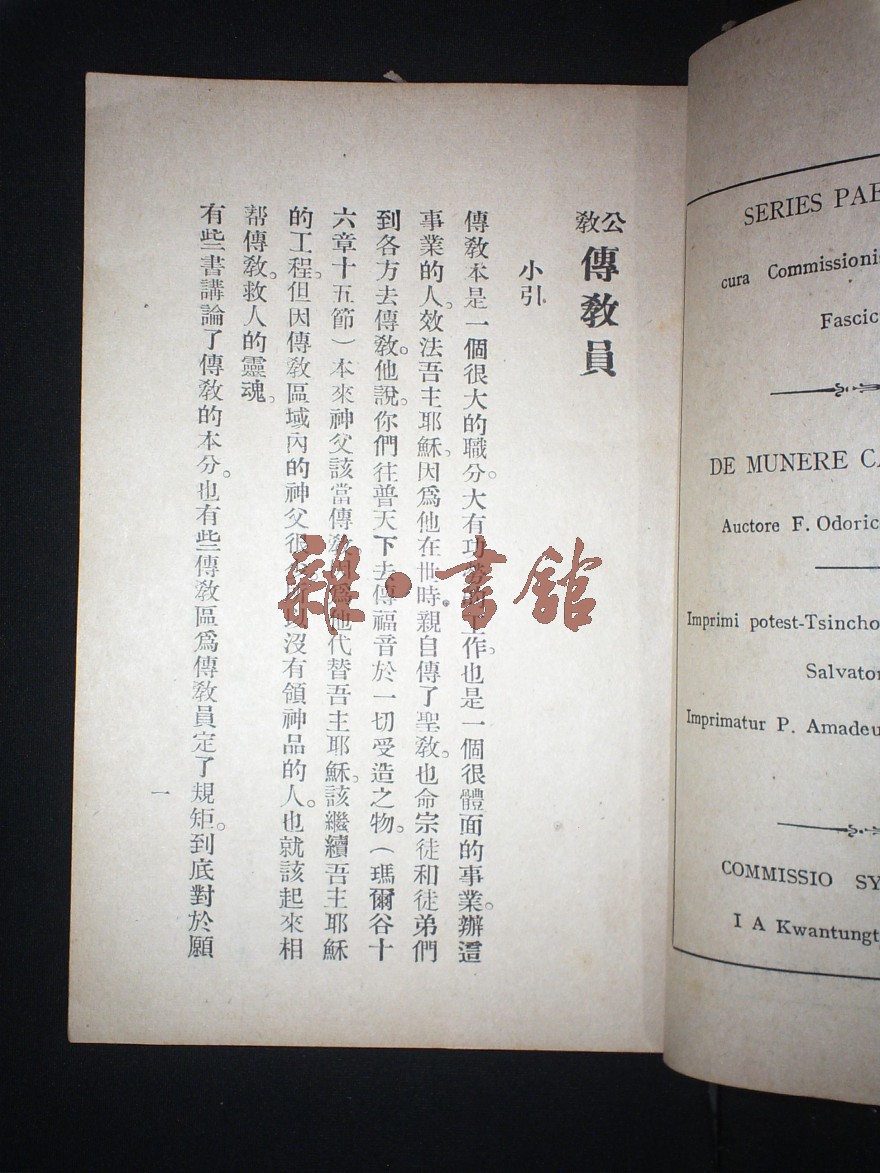 公教傳教員
小引
傳教本是一個很大的職分。大有功勞的工作。也是一個很體面的事業。辦這
事業的人。效法吾主耶穌。因爲他在世時。親自傳了聖教。也命宗徒和徒弟們
到各方去傳教。他說。你們往普天下去傳福音於一切受造之物。（瑪爾谷十
六章十五節）本來神父該當傳教。因爲他代替吾主耶穌。該繼續吾主耶穌
的工程。但因傳教區域內的神父很
沒有領神品的人。也就該起來相
幇傳教。救人的靈魂。
有些書講論了傳教的本分。也有些傳教區爲傳教員定了規矩。到底對於願
一
雜·書館
SERIES PAE
cura Commissionis
Fascic
DE MUNERE CA
Auctore F. Odoric
Imprimi potest-Tsincho
Salvator
Imprimatur P. Amadeu
COMMISSIO SY
I A Kwantungt